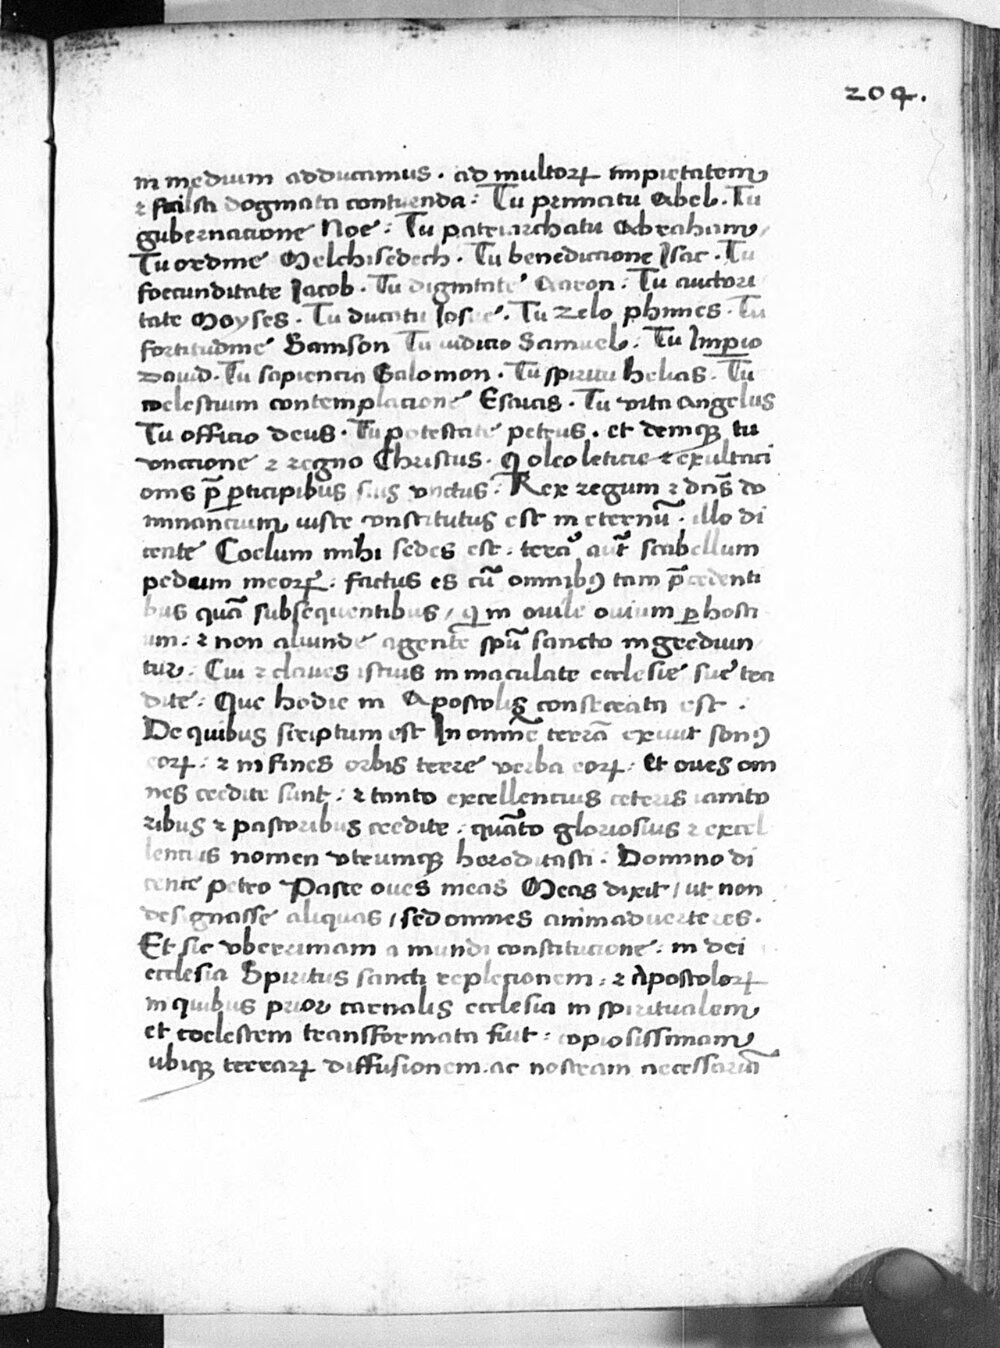 204.
in medium adducamus. ad multorꝝ impietatem
⁊ falsa dogmata contuenda: Tu primatu Abel. Tu
gubernatione Noe: Tu patriarchatu Abraham,
Tu ordine Melchisedech. Tu benedictione Isac. Tu
foecunditate Jacob. Tu dignitate Aaron: Tu auctori
tate Moyses. Tu ducatu Josue. Tu zelo phinees. Tu
fortitudine Samson Tu iudicio Samuel: Tu Impio
David. Tu sapiencia Salomon. Tu spiritu helias. Tu
coelestium contemplatione Esaias. Tu vita angelus
Tu officio deus. Tu potestate petrus. et demqꝫ tu
vnctione ⁊ regno Christus. Qͥ oleo leticie ⁊ exultaci
oms p̄ ꝑticipibus suis vnctus: Rex regum ⁊ dn̄s do
minancium, iuste constitutus est in eternū. illo di
cente Coelum mihi sedes est: terra aut̄ scabellum
pedum meorꝝ: factus es cū omnibꝰ tam p̄cedenti
bus quā subsequentibus, qͥ in ouile ouium ꝑ hosti
um: ⁊ non aliunde agente spū sancto ingrediun
tur. Cui ⁊ claues istius immaculate ecclesie sue tra
dite: Que hodie in Apostolis consecrata est.
De quibus scriptum est In omnē terrā exiuit sonꝰ
eorꝝ: ⁊ in fines orbis terre verba eorꝝ: Et oues om
nes credite sunt: ⁊ tanto excellencius ceteris
ribus ⁊ pastoribus credite: quāto gloriosius ⁊ excel
lencius nomen vtrumqꝫ hereditasti. Domino di
cente petro Pasce oues meas Meas dixit, ut non
designasse aliquas, sed omnes animaduerteres.
Et sic vberrimam a mundi constitucione: in dei
ecclesia Spiritus sancti repletionem: ⁊ Apostolorꝝ
in quibus prior carnalis ecclesia in spiritualem,
et coelestem transformata fuit: copiosissimam,
ubiqꝫ terrarꝝ diffusionem. ac nostram necessariā